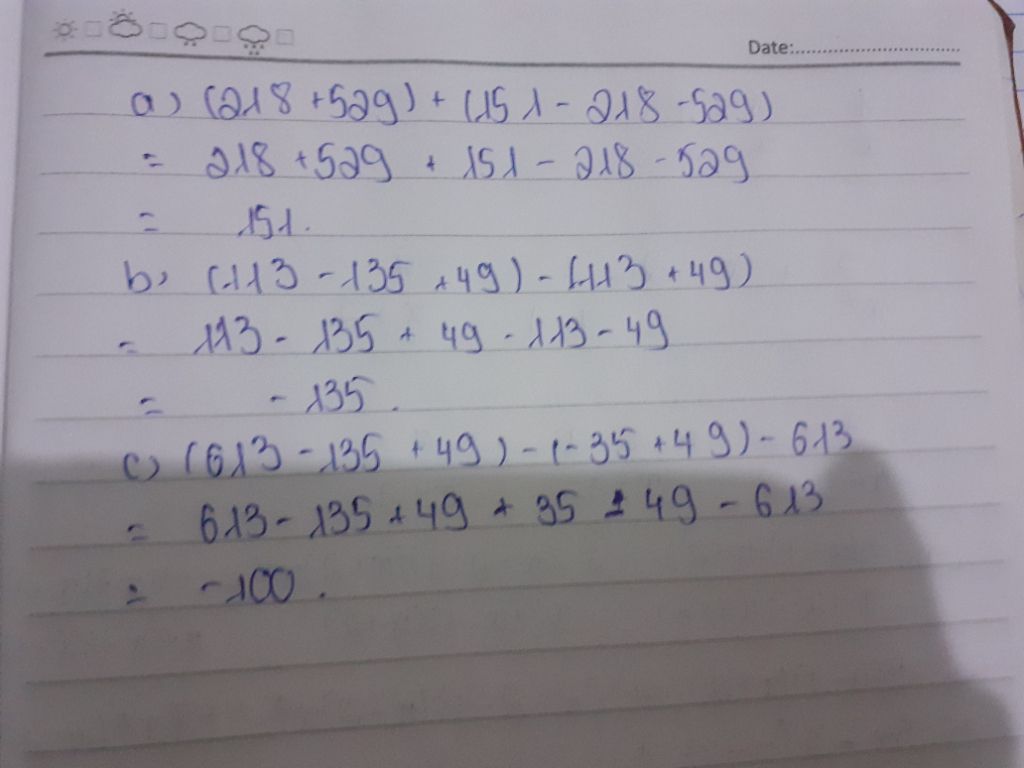 Date:
a) (218 + 529) + (151 - 218 - 529)
= 218 + 529 + 151 - 218 - 529
= 151.
b) (113 - 135 + 49) - (113 + 49)
= 113 - 135 + 49 - 113 - 49
= - 135.
c) (613 - 135 + 49) - (- 35 + 49) - 613
= 613 - 135 + 49 + 35 - 49 - 613
= - 100.